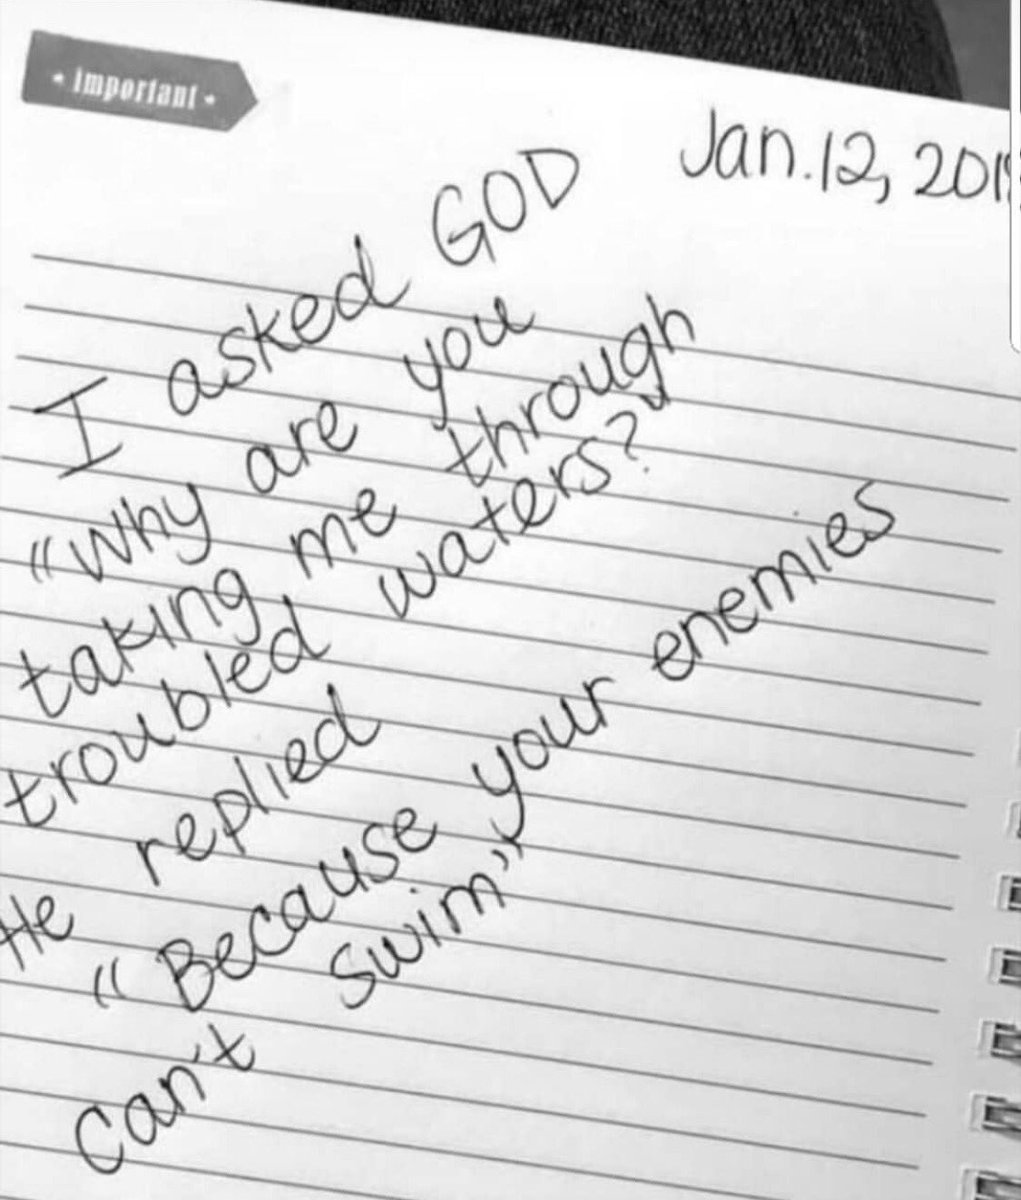 • important •
Jan. 12, 201
I asked GOD
"Why are you
taking me through
troubled waters?"
He replied
"Because your enemies
Can't swim"